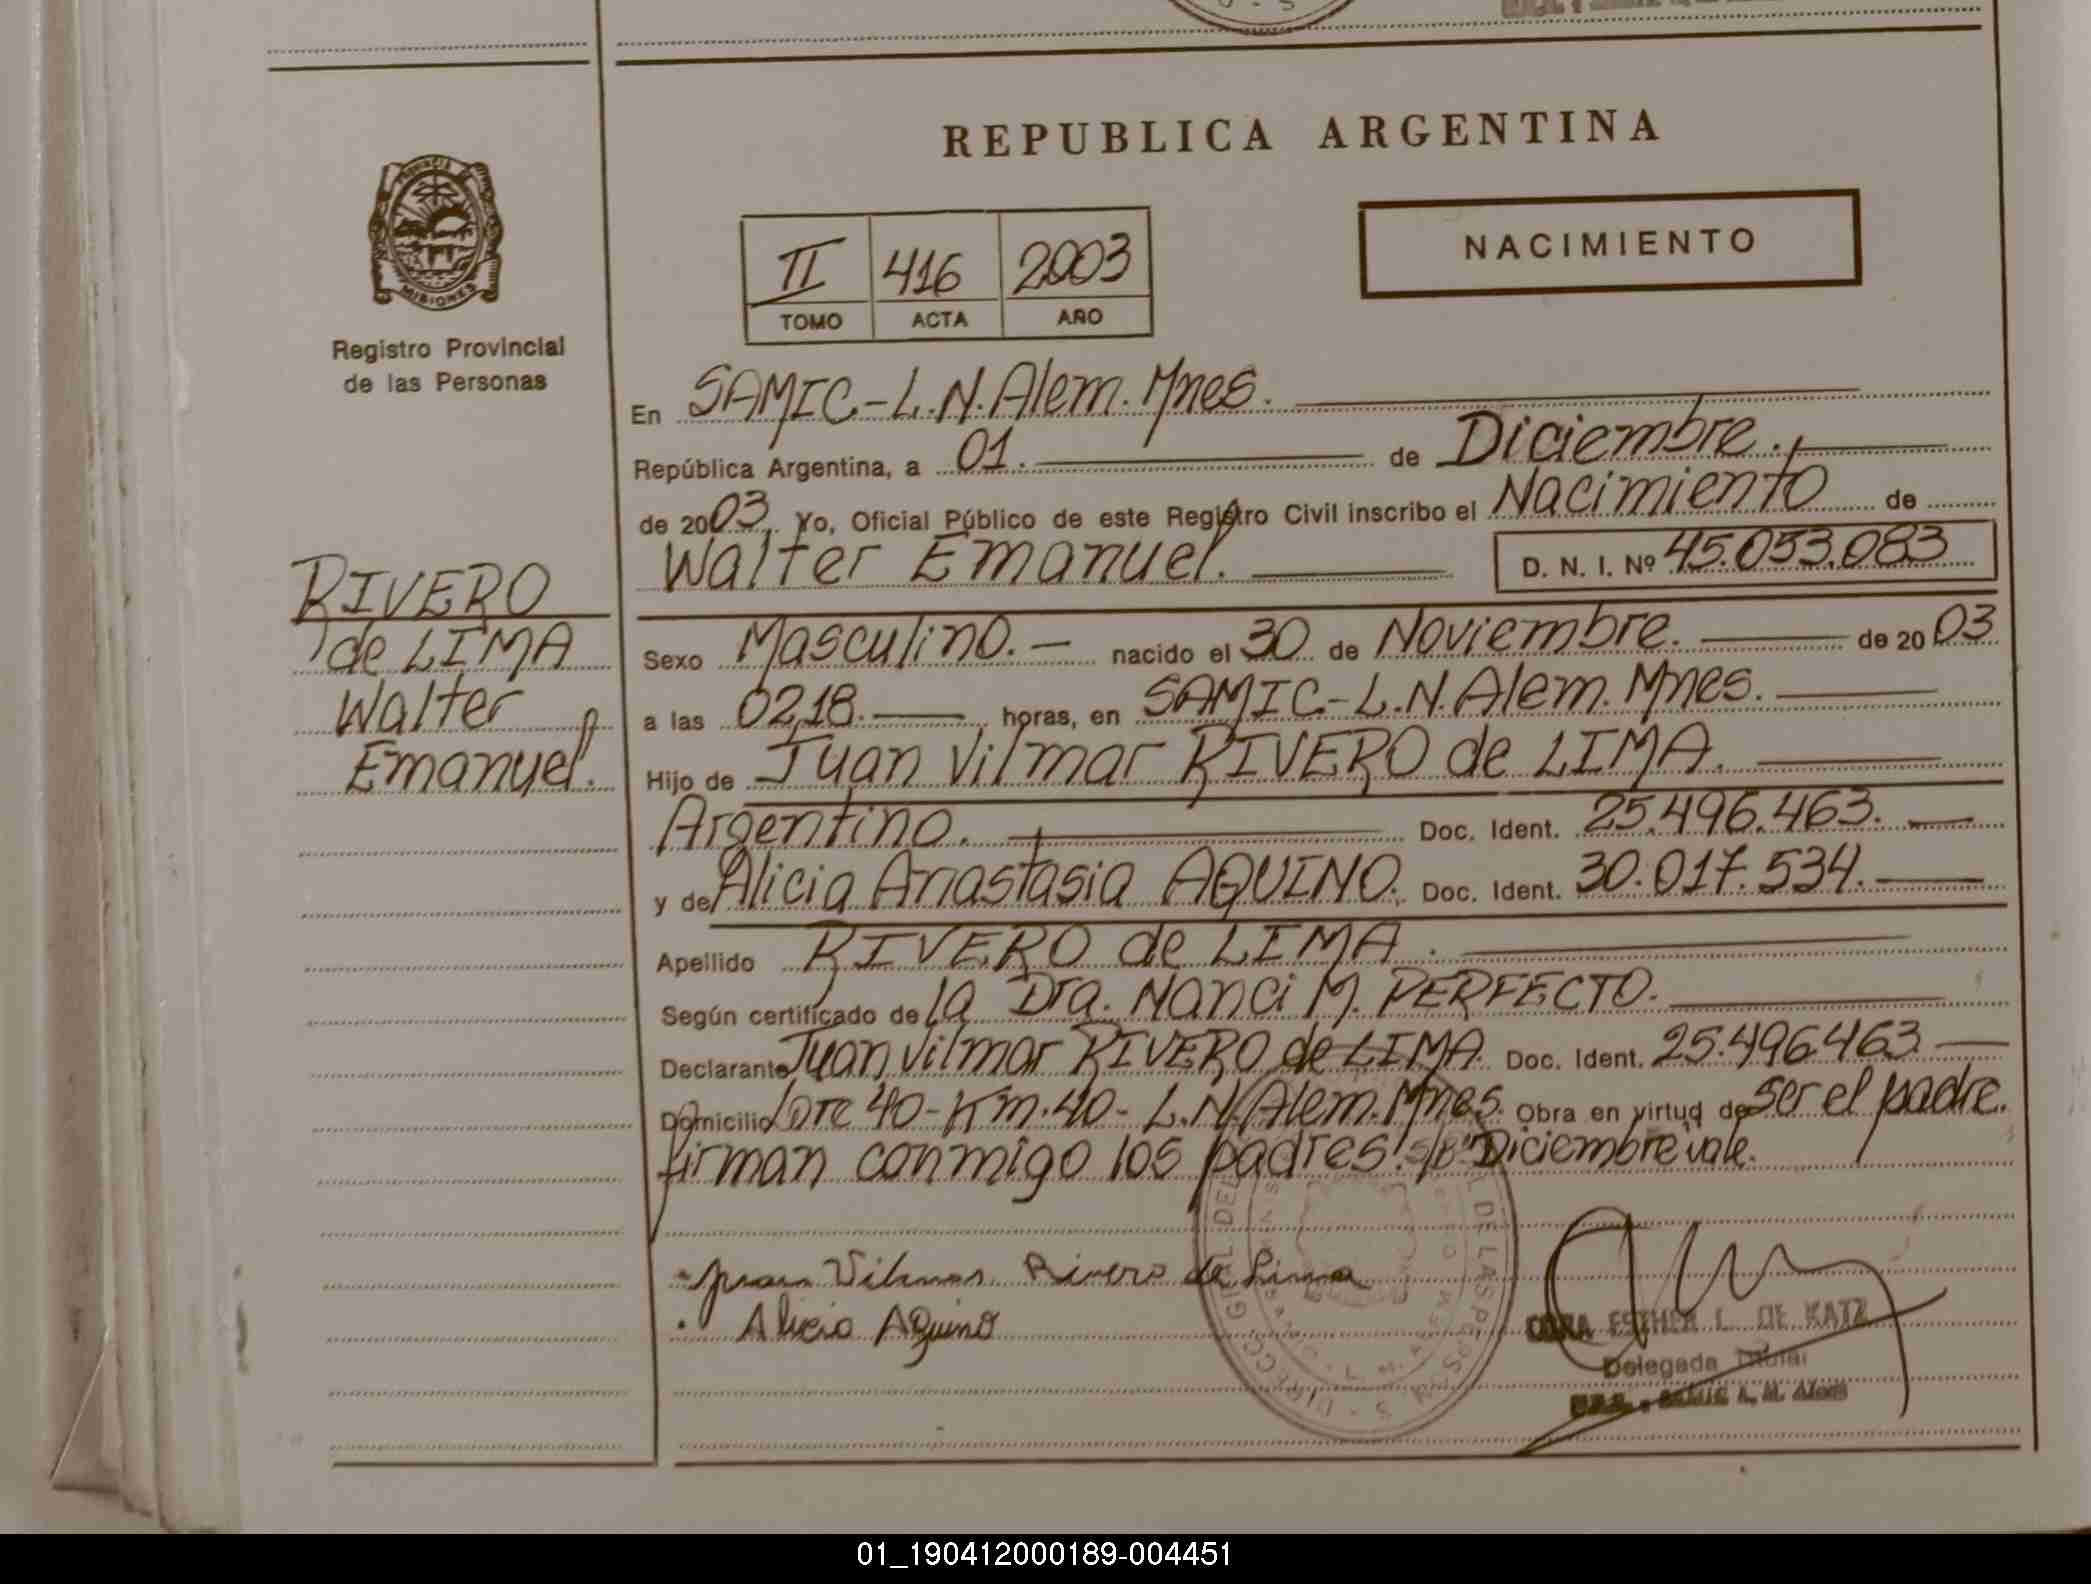 REPUBLICA ARGENTINA
NACIMIENTO
II 416 2003
TOMO ACTA AÑO
PROVINCIA
MISIONES
Registro Provincial
de las Personas
RIVERO
de LIMA
Walter
Emanuel.
En SAMIC.-L.N.Alem.Mnes.
República Argentina, a 01. de Diciembre.
de 2003. Yo, Oficial Público de este Registro Civil inscribo el Nacimiento de
Walter Emanuel. D. N. I. Nº 45.053.083
Sexo Masculino.- nacido el 30 de Noviembre. de 2003
a las 0218. horas, en SAMIC-L.N.Alem.Mnes.
Hijo de Juan Vilmar RIVERO de LIMA.
Argentino. Doc. Ident. 25.496.463.
y de Alicia Anastasia AQUINO. Doc. Ident. 30.017.534.
Apellido RIVERO de LIMA.
Según certificado de la Dra. Nanci M. PERFECTO.
Declarante Juan Vilmar RIVERO de LIMA. Doc. Ident. 25.496463
Domicilio lote 40-Km.40- L.N.Alem.Mnes. Obra en virtud de ser el padre.
firman conmigo los padres. S/B "Diciembre vale.
Juan Vilmar Rivero de Lima
Alicia Aquino
ESTHER L. DE KATZ
Delegada Titular
01_190412000189-004451